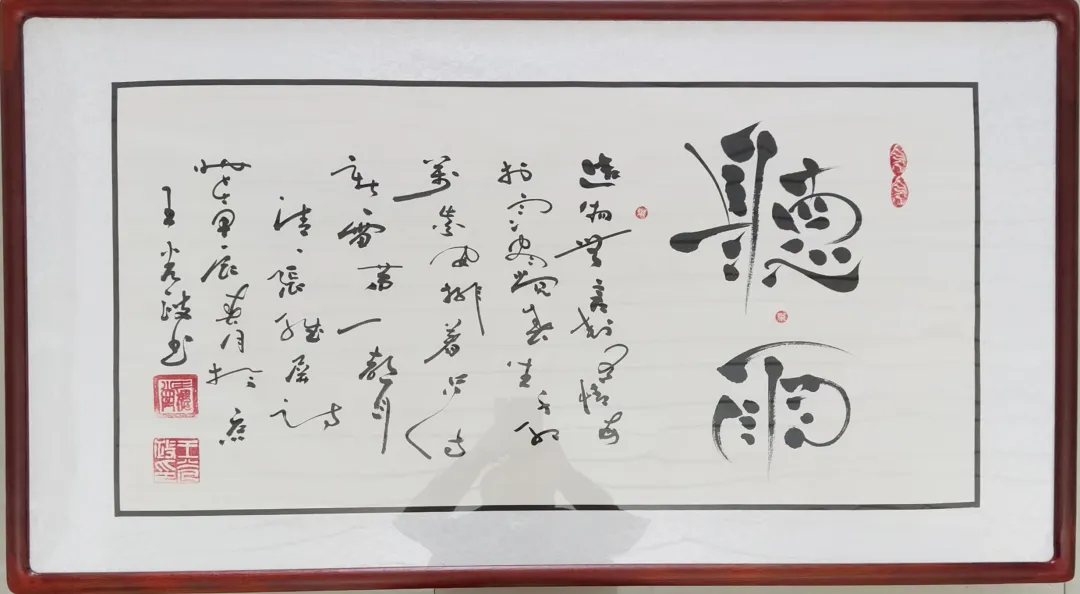 聽雨
造物無言却有情每
於寒盡覺春生千紅
萬紫安排著只待
新雷第一聲
清張維屏詩
歲甲辰春月於
王光